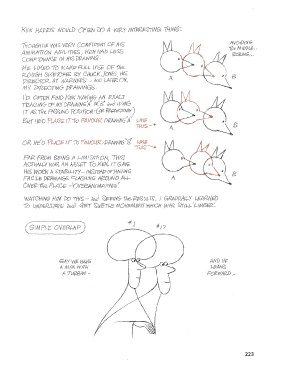 KEN HARRIS WOULD OFTEN DO A VERY INTERESTING THING:
THOUGH HE WAS VERY CONFIDENT OF HIS
ANIMATION ABILITIES, KEN HAD LESS
CONFIDENCE IN HIS DRAWING.
HE LIKED TO MAKE FULL USE OF THE
ROUGH GIVEN HIM BY CHUCK JONES, HIS
DIRECTOR, AT WARNERS - AND LATER ON,
MY DIRECTING DRAWINGS.
I'D OFTEN FIND KEN MAKING AN EXACT
TRACING OF MY DRAWING 'A' OR 'B' AND USING
IT AS THE PASSING POSITION (OR BREAKDOWN)
BUT HE'D PLACE IT TO FAVOUR DRAWING 'A' LIKE THIS
OR HE'D PLACE IT TO FAVOUR DRAWING 'B' LIKE THIS
FAR FROM BEING A LIMITATION, THIS
ACTUALLY WAS AN ASSET TO KEN. IT GAVE
HIS WORK A STABILITY - INSTEAD OF HAVING
DRAWINGS FLASHING AROUND ALL
OVER THE PLACE - 'OVERANIMATING'.
WATCHING HIM DO THIS - AND SEEING THE RESULTS, I GRADUALLY LEARNED
TO UNDERSTAND AND GET SUBTLE MOVEMENT WHICH WAS STILL 'LIMBER'.
IN THE MIDDLE -
BORING...
A
B
A
B
A
B
SIMPLE OVERLAP
#1
#17
SAY WE HAVE
A MAN WITH
A TURBAN -
AND HE
LEANS
FORWARD -
223